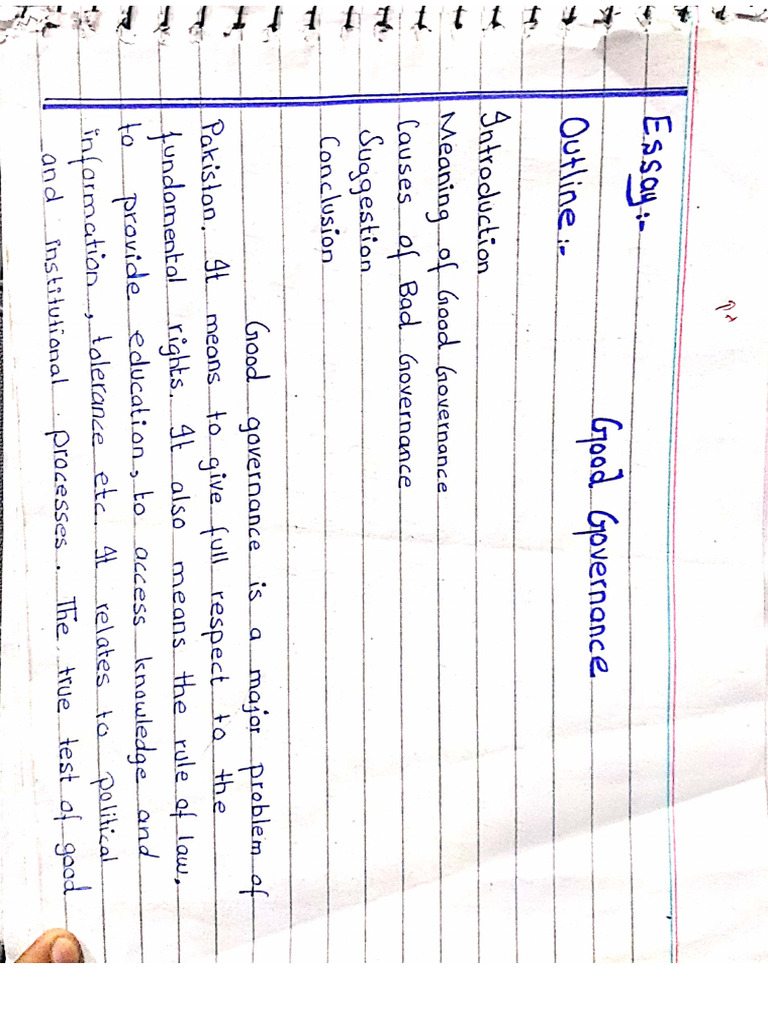 Essay:-
Good Governance
Outline:-
Introduction
Meaning of Good Governance
Causes of Bad Governance
Suggestion
Conclusion
Good governance is a major problem of
Pakistan. It means to give full respect to the
fundamental rights. It also means the rule of law,
to provide education, to access knowledge and
information, tolerance etc. It relates to political
and institutional processes. The true test of good